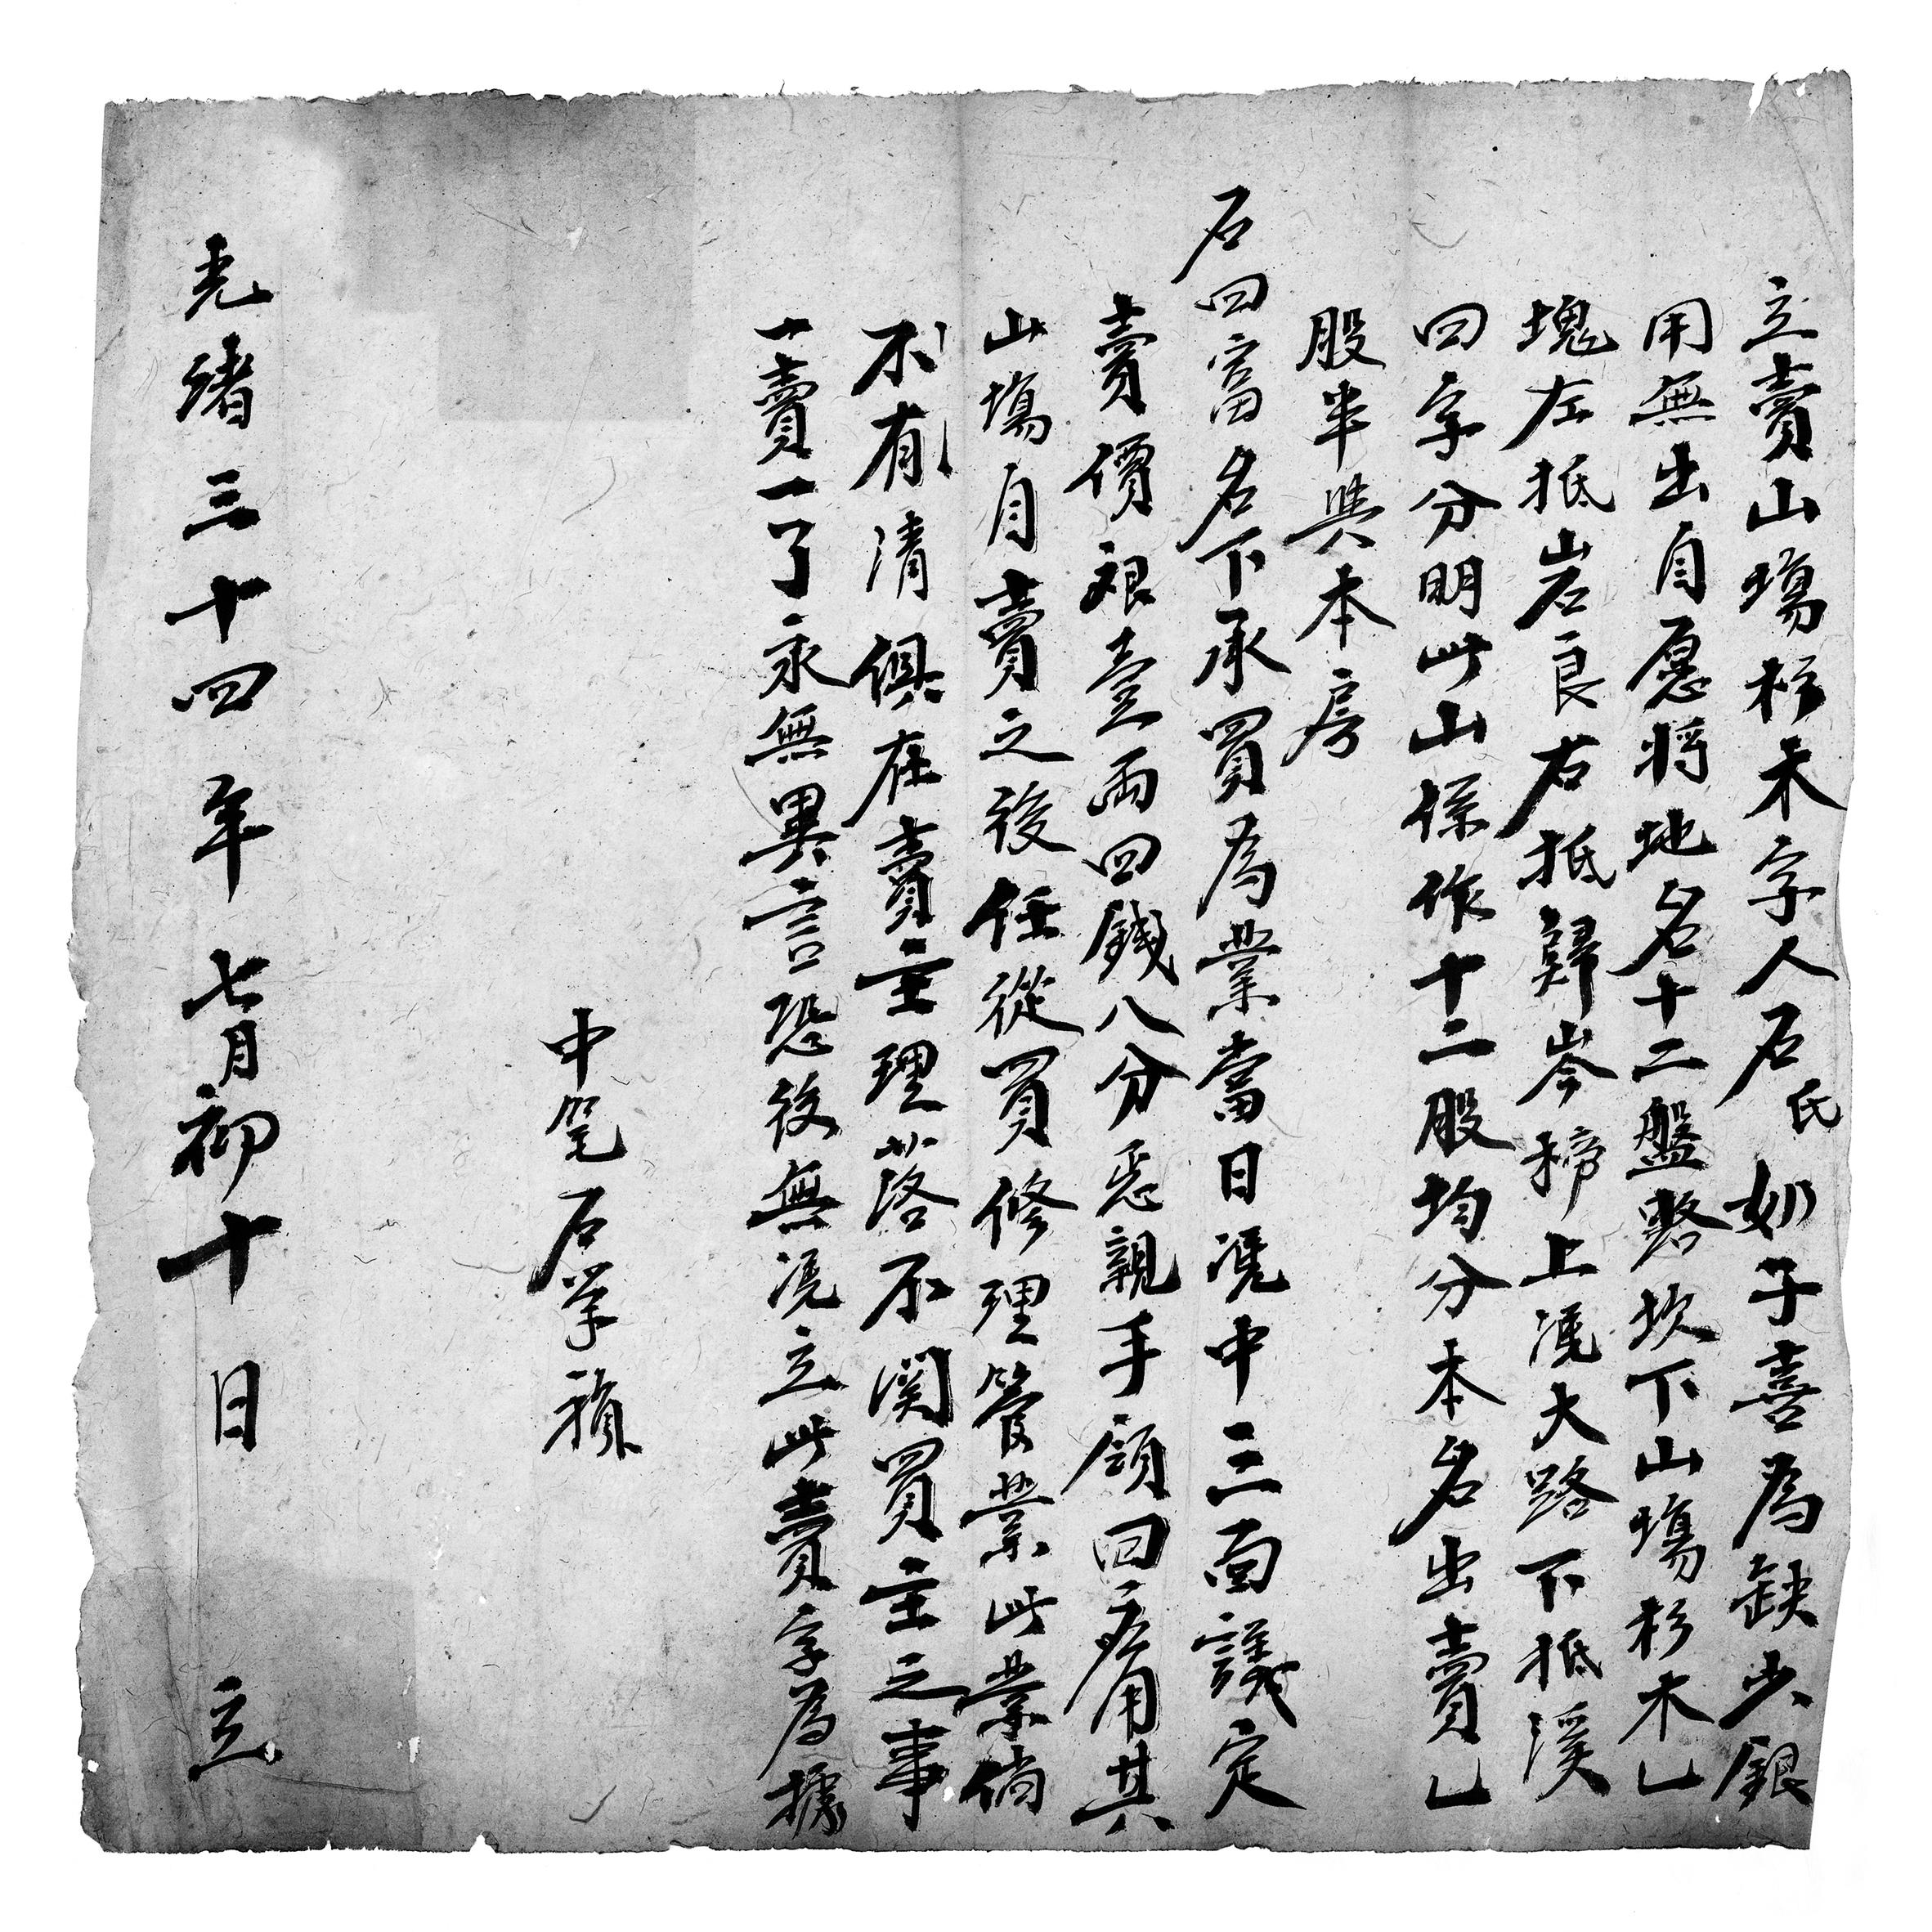 立賣山塲杉木字人石氏奶子喜為缺少銀
用無出自愿將地名十二盤磐坎下山塲杉木乚
塊左抵岩良右抵歸岑梯上凴大路下抵溪
四字分明此山係作十二股均分本名出賣乚
股半與本房
石四富名下承買為業當日凴中三面議定
賣價艮壹両四錢八分悉親手領回應用其
山塲自賣之後任從買修理管業此業倘
不有清俱在賣主理落不関買主之事
一賣一了永無異言恐後無凴立此賣字為據
中笔石掌
光緒三十四年七月初十日 立